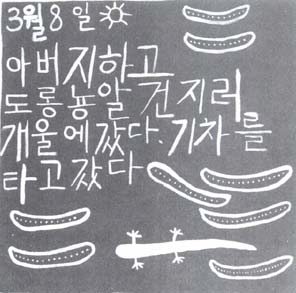 3월 8일
아버지하고
도롱뇽알 건지러
개울에 갔다. 기차를
타고 갔다